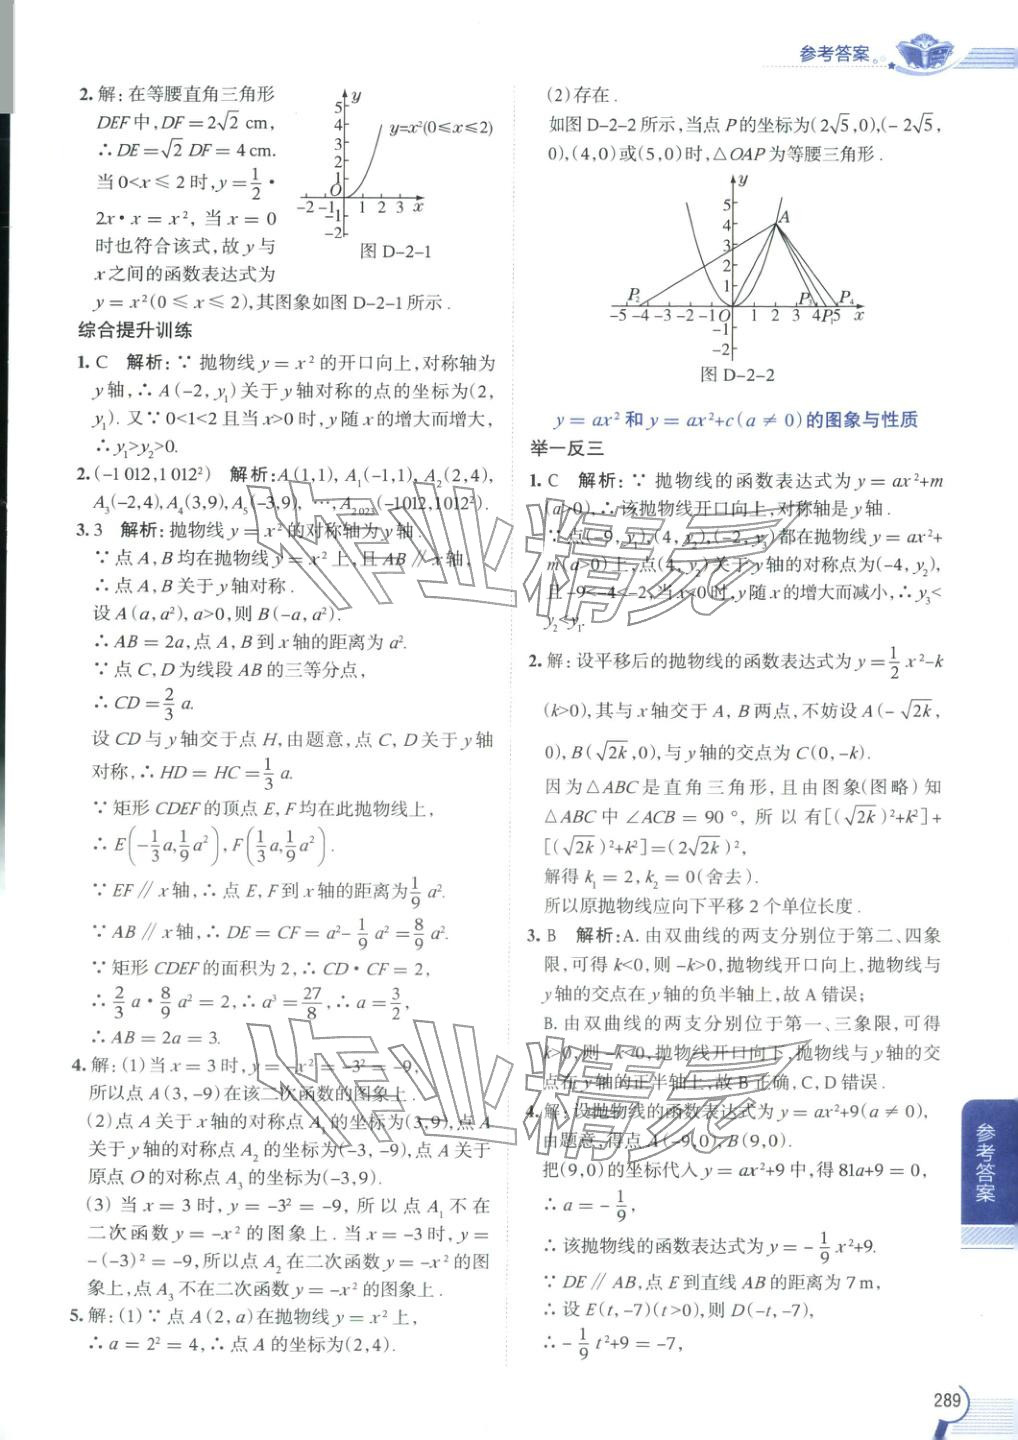 参考答案
2.解:在等腰直角三角形
DEF中,DF=2√2 cm,
∴DE=√2 DF=4 cm.
当0<x≤2时,y=1/2·
2x·x=x²,当x=0
时也符合该式,故y与
x之间的函数表达式为
y=x²(0≤x≤2),其图象如图D-2-1所示.
y=x²(0≤x≤2)
图D-2-1
综合提升训练
1.C 解析:∵抛物线y=x²的开口向上,对称轴为
y轴,∴A(-2,y₁)关于y轴对称的点的坐标为(2,
y₁).又∵0<1<2且当x>0时,y随x的增大而增大,
∴y₁>y₂>0.
2.(-1 012,1 012²) 解析:A(1,1),A₁(-1,1),A₂(2,4),
A₃(-2,4),A₄(3,9),A₅(-3,9),…,A₂₀₂₃(-1012,1012²).
3.3 解析:抛物线y=x²的对称轴为y轴.
∵点A,B均在抛物线y=x²上,且AB∥x轴,
∴点A,B关于y轴对称.
设A(a,a²),a>0,则B(-a,a²).
∴AB=2a,点A,B到x轴的距离为a².
∵点C,D为线段AB的三等分点,
∴CD=2/3 a.
设CD与y轴交于点H,由题意,点C,D关于y轴
对称,∴HD=HC=1/3 a.
∵矩形CDEF的顶点E,F均在此抛物线上,
∴E(-1/3 a,1/9 a²),F(1/3 a,1/9 a²).
∵EF∥x轴,∴点E,F到x轴的距离为1/9 a².
∵AB∥x轴,∴DE=CF=a²-1/9 a²=8/9 a².
∵矩形CDEF的面积为2,∴CD·CF=2,
∴2/3 a·8/9 a²=2,∴a³=27/8,∴a=3/2,
∴AB=2a=3.
4.解:(1)当x=3时,y=-x²=-3²=-9,
所以点A(3,-9)在该二次函数的图象上.
(2)点A关于x轴的对称点A₁的坐标为(3,9),点A
关于y轴的对称点A₂的坐标为(-3,-9),点A关于
原点O的对称点A₃的坐标为(-3,9).
(3)当x=3时,y=-3²=-9,所以点A₁不在
二次函数y=-x²的图象上.当x=-3时,y=
-(-3)²=-9,所以点A₂在二次函数y=-x²的图
象上,点A₃不在二次函数y=-x²的图象上.
5.解:(1)∵点A(2,a)在抛物线y=x²上,
∴a=2²=4,∴点A的坐标为(2,4).
(2)存在.
如图D-2-2所示,当点P的坐标为(2√5,0),(-2√5,
0),(4,0)或(5,0)时,△OAP为等腰三角形.
图D-2-2
y=ax²和y=ax²+c(a≠0)的图象与性质
举一反三
1.C 解析:∵抛物线的函数表达式为y=ax²+m
(a>0),∴该抛物线开口向上,对称轴是y轴.
∵点(-9,y₁),(4,y₂),(-2,y₃)都在抛物线y=ax²+
m(a>0)上,点(4,y₂)关于y轴的对称点为(-4,y₂),
且-9<-4<-2,当x<0时,y随x的增大而减小,∴y₃<
y₂<y₁.
2.解:设平移后的抛物线的函数表达式为y=1/2 x²-k
(k>0),其与x轴交于A,B两点,不妨设A(-√2k,
0),B(√2k,0),与y轴的交点为C(0,-k).
因为△ABC是直角三角形,且由图象(图略)知
△ABC中∠ACB=90°,所以有[(√2k)²+k²]+
[(√2k)²+k²]=(2√2k)²,
解得k₁=2,k₂=0(舍去).
所以原抛物线应向下平移2个单位长度.
3.B 解析:A.由双曲线的两支分别位于第二、四象
限,可得k<0,则-k>0,抛物线开口向上,抛物线与
y轴的交点在y轴的负半轴上,故A错误;
B.由双曲线的两支分别位于第一、三象限,可得
k>0,则-k<0,抛物线开口向下,抛物线与y轴的交
点在y轴的正半轴上,故B正确,C,D错误.
4.解:设抛物线的函数表达式为y=ax²+9(a≠0),
由题意,得点A(-9,0),B(9,0).
把(9,0)的坐标代入y=ax²+9中,得81a+9=0,
∴a=-1/9,
∴该抛物线的函数表达式为y=-1/9 x²+9.
∵DE∥AB,点E到直线AB的距离为7 m,
∴设E(t,-7)(t>0),则D(-t,-7),
∴-1/9 t²+9=-7,
参考答案
289
作业精灵
作业精灵